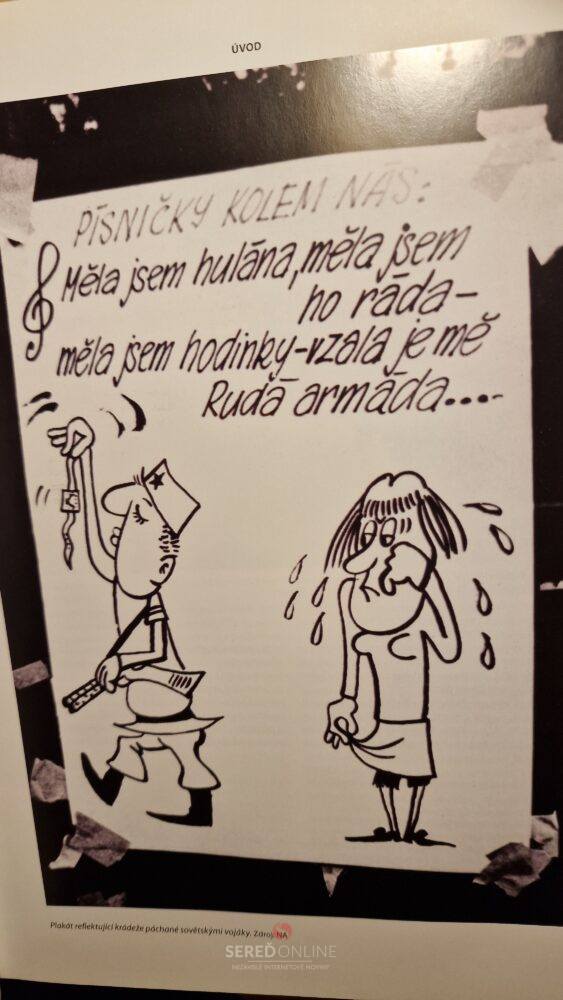 ÚVOD
PÍSNIČKY KOLEM NÁS:
Měla jsem hulána, měla jsem
ho ráda-
měla jsem hodinky-vzala je mě
Rudá armáda....
Plakát reflektující krádeže páchané sovětskými vojáky. Zdroj: NA
SEREĎONLINE
NEZÁVISLÉ INTERNETOVÉ NOVINY